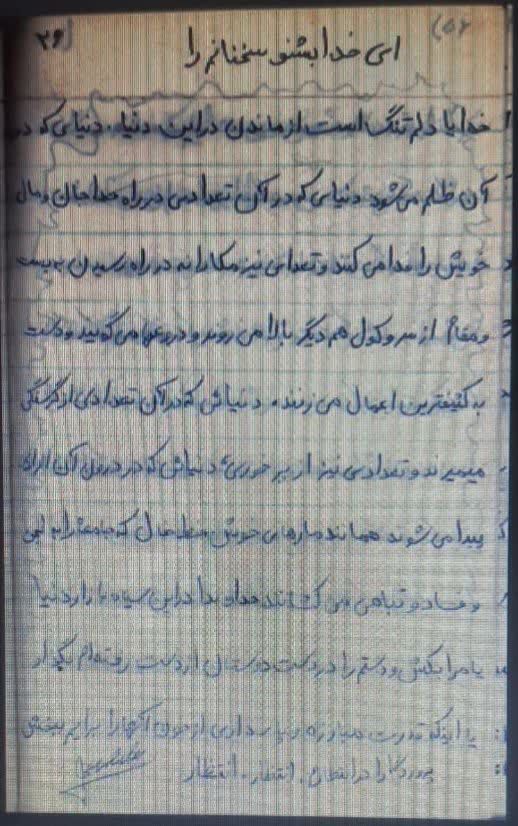 ۲۶)
(۵۶
ای خدا بشنو سخنانم را
خدایا دلم تنگ است از ماندن در این دنیا. دنیایی که در
آن ظلم می‌شود دنیایی که در آن تعدادی در راه خدا جان و مال
خویش را فدا می کنند و تعدادی نیز مکارانه در راه رسیدن به پست
و مقام از سر و کول هم دیگر بالا می روند و دروغ می گویند و دست
به کثیفترین اعمال می زنند. دنیائی که در آن تعدادی از گرسنگی
میمیرند و تعدادی نیز از پر خوری، دنیائی که در درون آن افرادی
پیدا می شوند همانند مارهای خوش خط و خال که جامعه را به
و فساد و تباهی می کشانند خدایا در این سیاه بازار دنیا
یا مرا بکش و دستم را در دست دوستان از دست رفته‌ام بگذار
یا اینکه قدرت مبارزه و پاسداری از خون آنها را برایم ببخش
پروردگارا در انتظارم. انتظار. انتظار